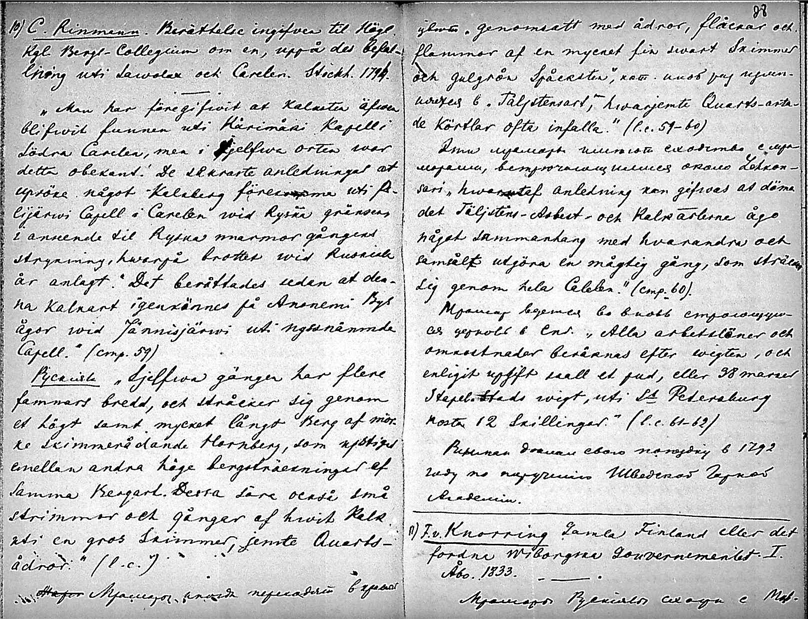 10) C. Rinmann. Berättelse ingifven til Högl.
Kgl. Bergs-Collegium om en, uppå des befal-
lning uti Sawolax och Carelen. Stockh. 1794.
"Man har föregifwit at Kalksten äfven
blifwit funnen uti Härimäki Kapell i
Södra Carelen, men i sjelfwa orten war
detta obekant. De säkraste anledningar at
upröne något Kalkberg förekomma uti
lijärwi Capell i Carelen wid Ryska gränsen
i anseende til Ryska marmor gångens
strykning, hwarpå brottet wid Ruskiala
är anlagt." Det berättades sedan at den-
na Kalkart igenkännes på Anonemi Bys
ägor wid Jänisjärwi uti nyssnämnde
Capell." (стр. 59)
Рускиала "Sjelfwa gången har flere
famnars bredd, och sträcker sig genom
et högt samt mycket långt Berg af mör-
ke skimmerådande Hornberg, som upstiger
emellan andra höge bergsträckningar af
samma Bergart. Dessa före också små
strimmor och gångar af hwit Kalk
uti en gros Skimmer, jemte Quarts-
ådror." (l.c.)
Мрамор иногда переходит в
88
"genomsatt med ådror, fläckar och
flammor af en mycket fin swart Skimmer
och gulgrön Späcksten",
в "Täljstensart", hwarjemte Quarts-arta-
de Körtlar ofta infalla." (l.c. 59-60)
Эти мраморы имеют сходство с мра-
морами, встречающимися около
sari, "hwaraf anledning kan gifvas at döma
det Täljstens-Asbest- och Kalkarterne äga
något sammanhang med hvarandra och
samfält utgöra en mägtig gång, som sträcker
sig genom hela Carelen." (стр. 60).
Мрамор ведется во вновь строющую-
ся церковь в Спб. "Alla arbetslöner och
omkostnader beräknas efter wigten, och
enligit upgift skall et pud, eller 38 marker
Stapel-stads wigt, uti St Petersburg
kosta 12 Skillingar." (l.c. 61-62)
Ринман делал свою поездку в 1792
году по поручению Шведской Горной
Академии.
F. v. Knorring Gamla Finland eller det
fordna Wiborgska Gouvernementet. I.
Åbo. 1833.
Мрамор Рускиалы сходен с